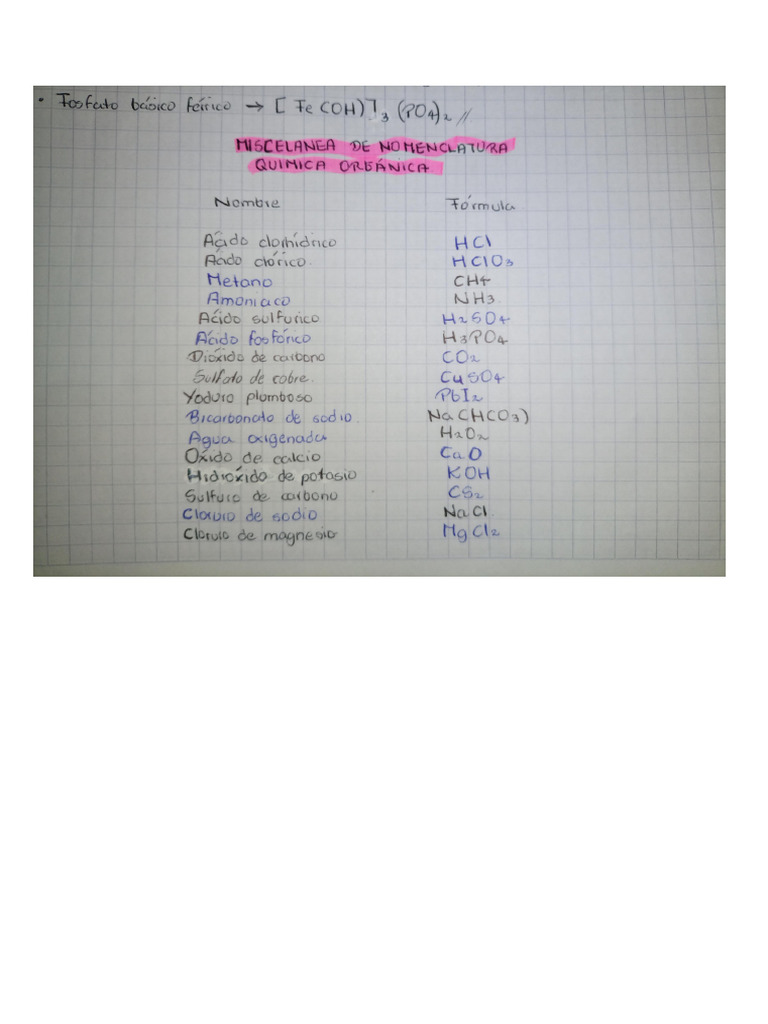 • Fosfato básico férrico → [Fe(OH)]₃ (PO₄)₂ //
MISCELANEA DE NOMENCLATURA
QUIMICA ORGÁNICA
Nombre Fórmula
Ácido clorhídrico HCl
Ácido clórico. HClO₃
Metano CH₄
Amoniaco NH₃.
Ácido sulfurico H₂SO₄
Ácido fosfórico H₃PO₄
Dióxido de carbono CO₂
Sulfato de cobre. CuSO₄
Yoduro plomboso PbI₂
Bicarbonato de sodio. Na(HCO₃)
Agua oxigenada H₂O₂
Óxido de calcio CaO
Hidróxido de potasio KOH
Sulfuro de carbono CS₂
Cloruro de sodio NaCl.
Cloruro de magnesio MgCl₂